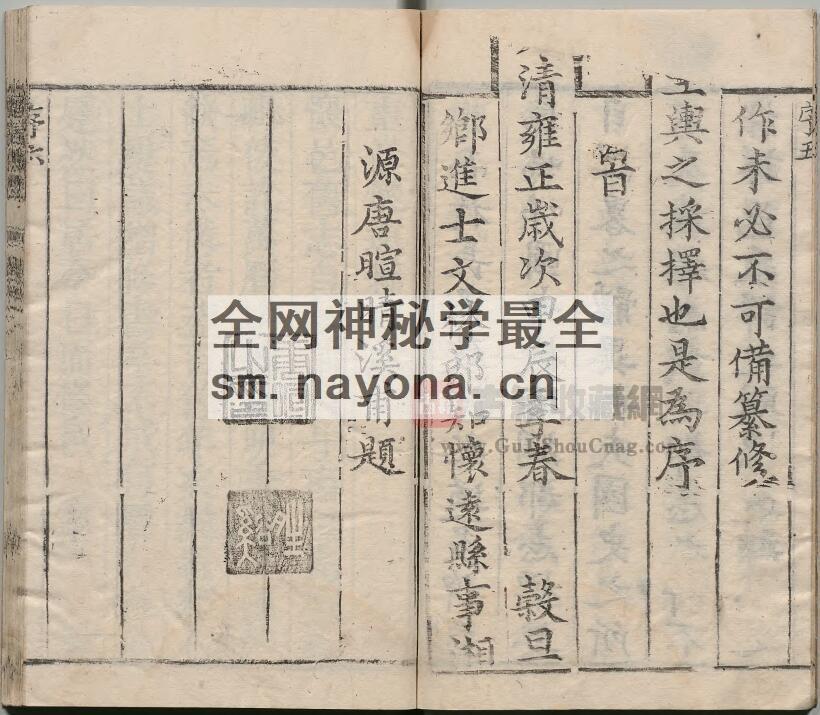 序五
作未必不可備纂修
之採擇也是為序
皆
清雍正歲次甲辰季春 穀旦
鄉進士文林郎知懷遠縣事湘
源唐暄時溪甫題
序六
全网神秘学最全
sm. nayona. cn
www.GuJiShouCang.com